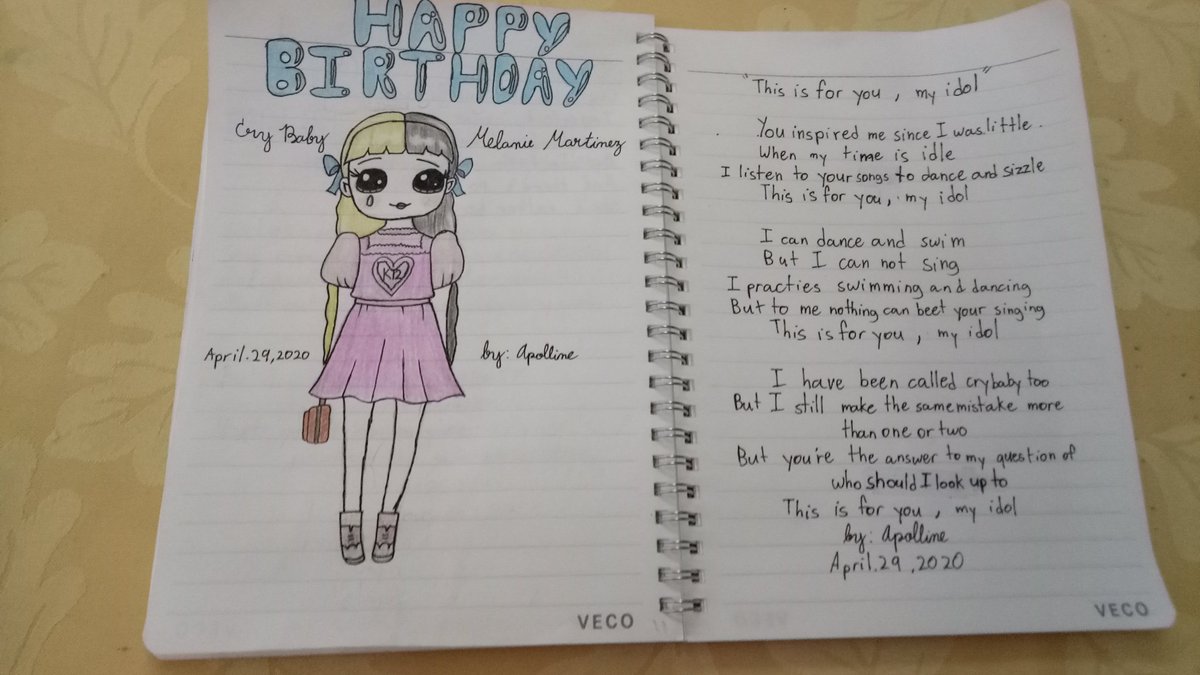 HAPPY
BIRTHDAY
Cry Baby
Melanie Martinez
K12
April.29,2020
by: Apolline
VECO
"This is for you, my idol"
You inspired me since I was little.
When my time is idle
I listen to your songs to dance and sizzle
This is for you, my idol
I can dance and swim
But I can not sing
I practies swimming and dancing
But to me nothing can beet your singing
This is for you, my idol
I have been called crybaby too
But I still make the same mistake more
than one or two
But you're the answer to my question of
who should I look up to
This is for you, my idol
by: Apolline
April.29,2020
VECO